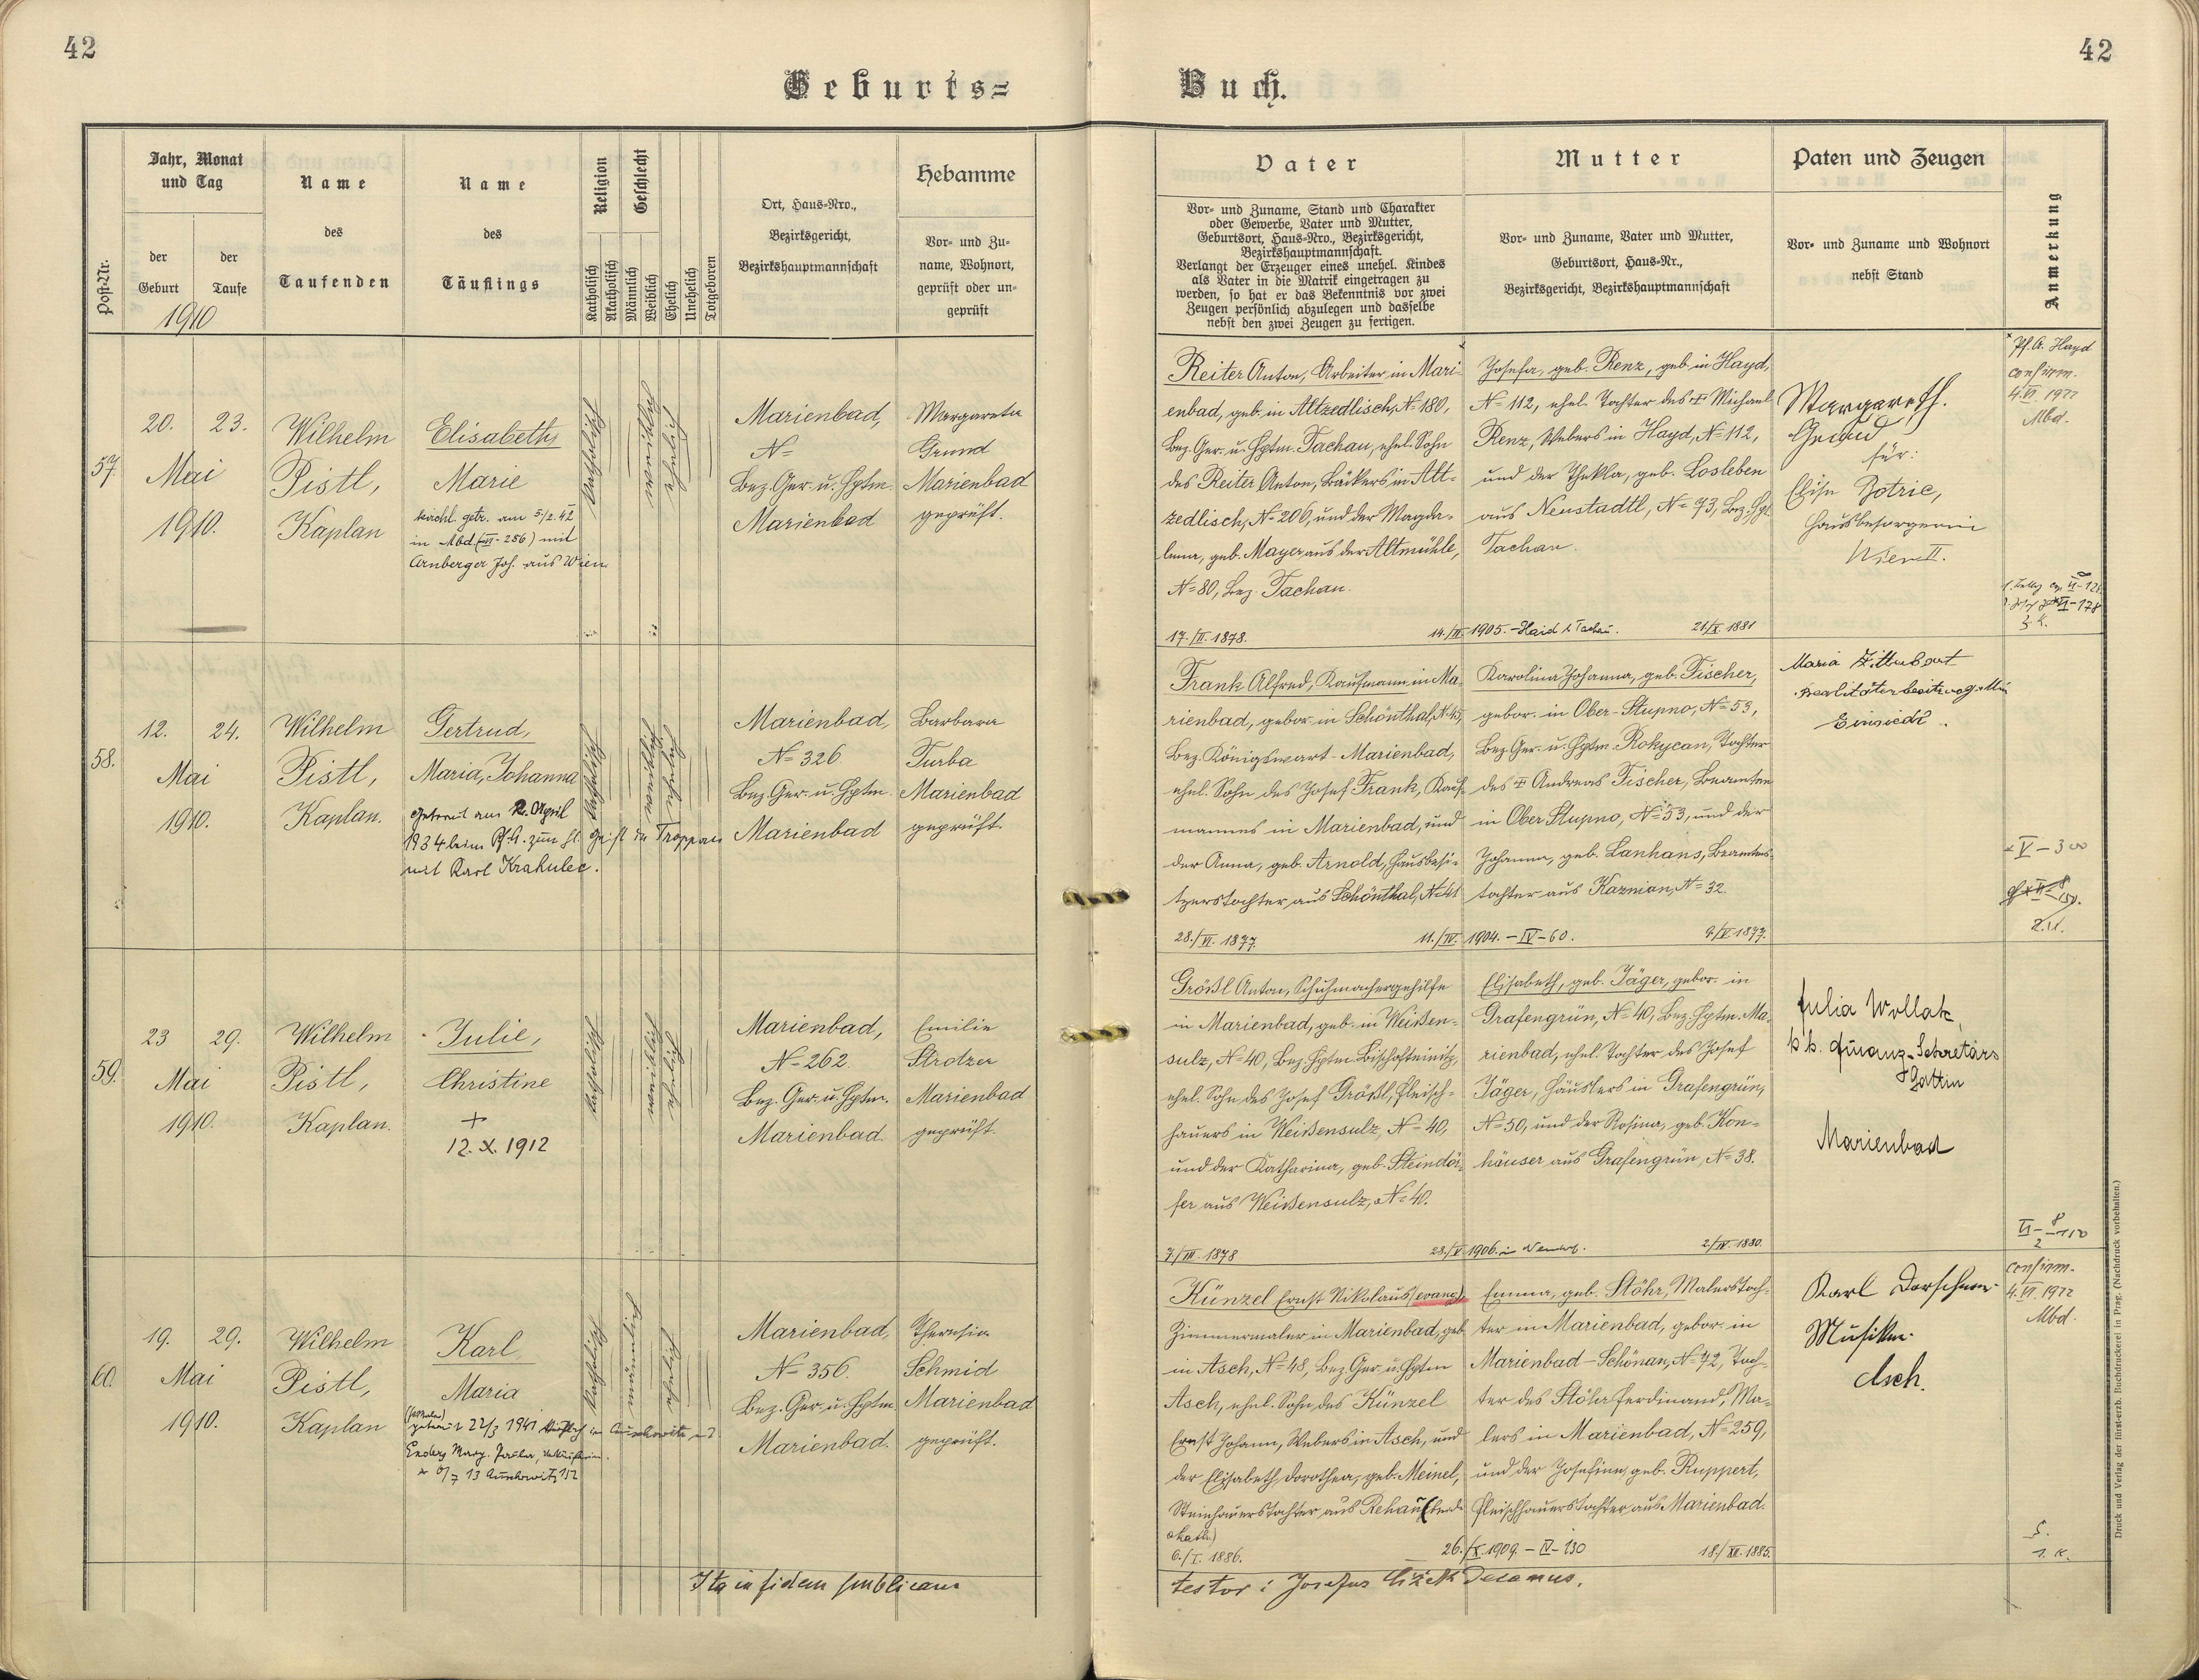 42
42
Geburts=
Buch.
Post-Nr.
Jahr, Monat
und Tag
der
Geburt
der
Taufe
1910
Name
des
Taufenden
Name
des
Täuflings
Religion
Katholisch
Akatholisch
Geschlecht
Männlich
Weiblich
Ehelich
Unehelich
Totgeboren
Ort, Haus-Nro.,
Bezirksgericht,
Bezirkshauptmannschaft
Hebamme
Vor- und Zu-
name, Wohnort,
geprüft oder un-
geprüft
Vater
Vor- und Zuname, Stand und Charakter
oder Gewerbe, Vater und Mutter,
Geburtsort, Haus-Nro., Bezirksgericht,
Bezirkshauptmannschaft.
Verlangt der Erzeuger eines unehel. Kindes
als Vater in die Matrik eingetragen zu
werden, so hat er das Bekenntnis vor zwei
Zeugen persönlich abzulegen und dasselbe
nebst den zwei Zeugen zu fertigen.
Mutter
Vor- und Zuname, Vater und Mutter,
Geburtsort, Haus-Nr.,
Bezirksgericht, Bezirkshauptmannschaft
Paten und Zeugen
Vor- und Zuname und Wohnort
nebst Stand
Anmerkung
57.
20.
23.
Mai
1910.
Wilhelm
Pistl,
Kaplan
Elisabeth
Marie
kirchl. getr. am 5/2.42
in Mbd (VII-256) mit
Arnberger Joh. aus Wien
katholisch
weiblich
ehelich
Marienbad,
N=
Bez. Ger. u. Hptm.
Marienbad
Margareta
Grund
Marienbad
geprüft.
Reiter Anton, Arbeiter in Mari-
enbad, geb. in Altzedlisch, N= 180,
Bez. Ger. u. Hptm. Tachau, ehel. Sohn
des Reiter Anton, Bäckers in Alt-
zedlisch, N= 206, und der Magda-
lena, geb. Mayer aus der Altmühle,
N= 80, Bez. Tachau.
17./II. 1878.
14./III. 1905. - Haid b. Tachau.
Josefa, geb. Renz, geb. in Hayd,
N= 112, ehel. Tochter des + Michael
Renz, Webers in Hayd, N= 112,
und der Thekla, geb. Losleben
aus Neustadtl, N= 73, Bez. Hptm.
Tachau.
21./X. 1881
Margareth.
Grund
für:
Elise
Hausbesorgerin
Wien II.
Pf. A. Hayd
confirm.
4.VI. 1922
Mbd.
58.
12.
24.
Mai
1910.
Wilhelm
Pistl,
Kaplan.
Gertrud,
Maria, Johanna
Getraut am 2. April
1934 beim Pf. A. zum hl. Geist in Troppau
mit Karl Krakulec.
katholisch
weiblich
ehelich
Marienbad,
N= 326.
Bez. Ger. u. Hptm.
Marienbad
Barbara
Turba
Marienbad
geprüft.
Frank Alfred, Kaufmann in Ma-
rienbad, gebor. in Schönthal, N= 45,
Bez. Königswart-Marienbad,
ehel. Sohn des Josef Frank, Kauf-
mannes in Marienbad, und
der Anna, geb. Arnold, Hausbesi-
tzerstochter aus Schönthal, N= 41
28./VI. 1877.
11./IV. 1904. - IV-60.
Karolina Johanna, geb. Fischer,
gebor. in Ober-Stupno, N= 53,
Bez. Ger. u. Hptm. Rokycan, Tochter
des + Andreas Fischer, Beamten
in Ober Stupno, N= 53, und der
Johanna, geb. Lanhans, Beamtens-
tochter aus Kaznian, N= 32.
9./V. 1877.
Maria
Einsiedl.
V-300
59.
23
29.
Mai
1910.
Wilhelm
Pistl,
Kaplan.
Julie,
Christine
+
12. X. 1912
katholisch
weiblich
ehelich
Marienbad,
N= 262.
Bez. Ger. u. Hptm.
Marienbad.
Emilie
Strotzer
Marienbad
geprüft.
Größl Anton, Schuhmachergehilfe
in Marienbad, geb. in Weißen-
sulz, N= 40, Bez. Hptm. Bischofteinitz,
ehel. Sohn des Josef Größl, Fleisch-
hauers in Weißensulz, N= 40,
und der Katharina, geb. Steindör-
fer aus Weißensulz, N= 40.
7./III. 1878
28./V. 1906. in
Elisabeth, geb. Jäger, gebor. in
Grafengrün, N= 40, Bez. Hptm. Ma-
rienbad, ehel. Tochter des Josef
Jäger, Häuslers in Grafengrün,
N= 50, und der Rosina, geb. Kon-
häuser aus Grafengrün, N= 38.
2./IV. 1880.
Julia Wollak,
k. k. Finanz-Sekretärs
Gattin
Marienbad
60.
19.
29.
Mai
1910.
Wilhelm
Pistl,
Kaplan
Karl
Maria
getraut 22/3 1941 in Auschowitz mit
Enders Marg. Verkäuferin.
* 6/7 13 Auschowitz 112
katholisch
männlich
ehelich
Marienbad,
N= 356.
Bez. Ger. u. Hptm.
Marienbad.
Theresia
Schmid
Marienbad
geprüft.
Künzel Ernst Nikolaus (evang.),
Zimmermaler in Marienbad, geb.
in Asch, N= 48, Bez. Ger. u. Hptm
Asch, ehel. Sohn des Künzel
Ernst Johann, Webers in Asch, und
der Elisabeth Dorothea, geb. Meinel,
Steinhauerstochter aus Rehau (beide
akath.)
6./I. 1886.
26./X. 1909. - IV-130
Emma, geb. Stöhr, Malerstoch-
ter in Marienbad, gebor. in
Marienbad-Schönau, N= 72, Toch-
ter des Stöhr Ferdinand, Ma-
lers in Marienbad, N= 259,
und der Josefine, geb. Ruppert,
Fleischhauerstochter aus Marienbad.
18./XII. 1885.
Karl
Musiker
Asch.
confirm.
4.VI. 1922
Mbd.
Ita in fidem publicam
testor: Josefus Čížek Decanus.
Druck und Verlag der fürst-erzb. Buchdruckerei in Prag. (Nachdruck vorbehalten.)